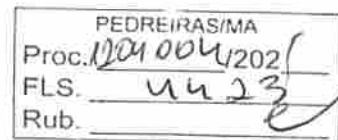 PEDREIRAS/MA
Proc. 1204004/202
FLS. 4423
Rub.